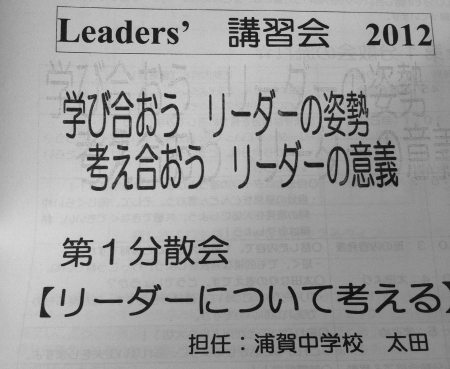 Leaders’ 講習会 2012
学び合おう リーダーの姿勢
考え合おう リーダーの意義
第１分散会
【リーダーについて考える】
担任：浦賀中学校 太田